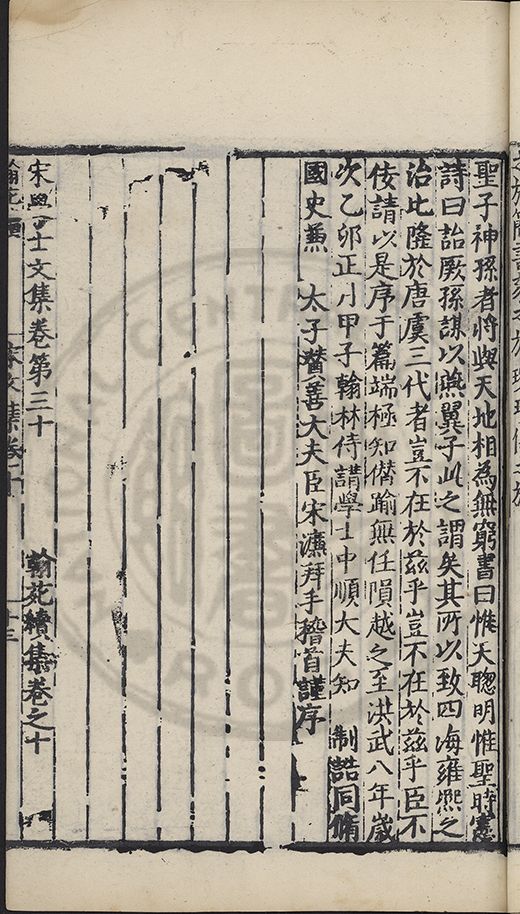 聖子神孫者將與天地相為無窮書曰惟天聰明惟聖時憲
詩曰詒厥孫謀以燕翼子此之謂矣其所以致四海雍熙之
治比隆於唐虞三代者豈不在於兹乎豈不在於兹乎臣不
佞請以是序于篇端極知僣踰無任隕越之至洪武八年歲
次乙卯正月甲子翰林侍講學士中順大夫知 制誥同脩
國史兼 太子贊善大夫臣宋濂拜手稽首謹序
宋學士文集卷第三十 翰苑續集卷之十